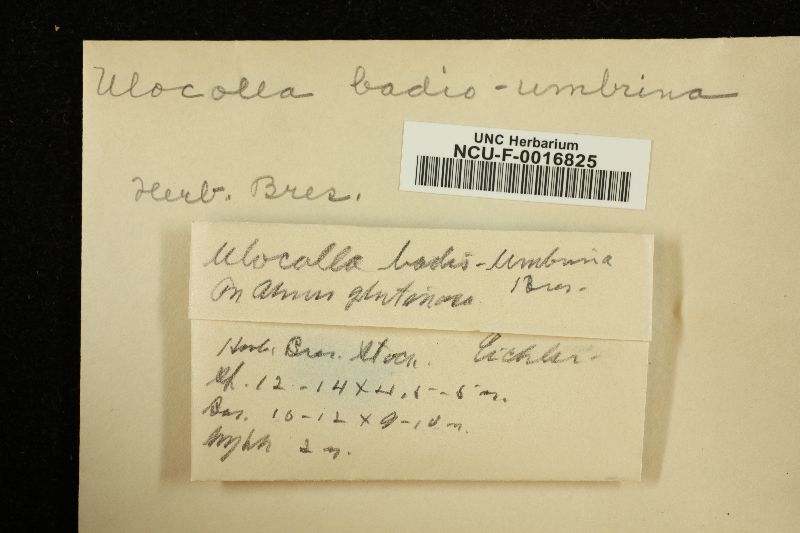 Ulocolla badio-umbrina
UNC Herbarium
NCU-F-0016825
Herb. Bres.
Ulocolla badio-umbrina
On Alnus glutinosa. Bres.
Herb. Bres. Stock. Eichler.
Sp. 12-14 X 4.5-5 m.
Bas. 10-12 X 9-10 m.
Hyph 2 m.